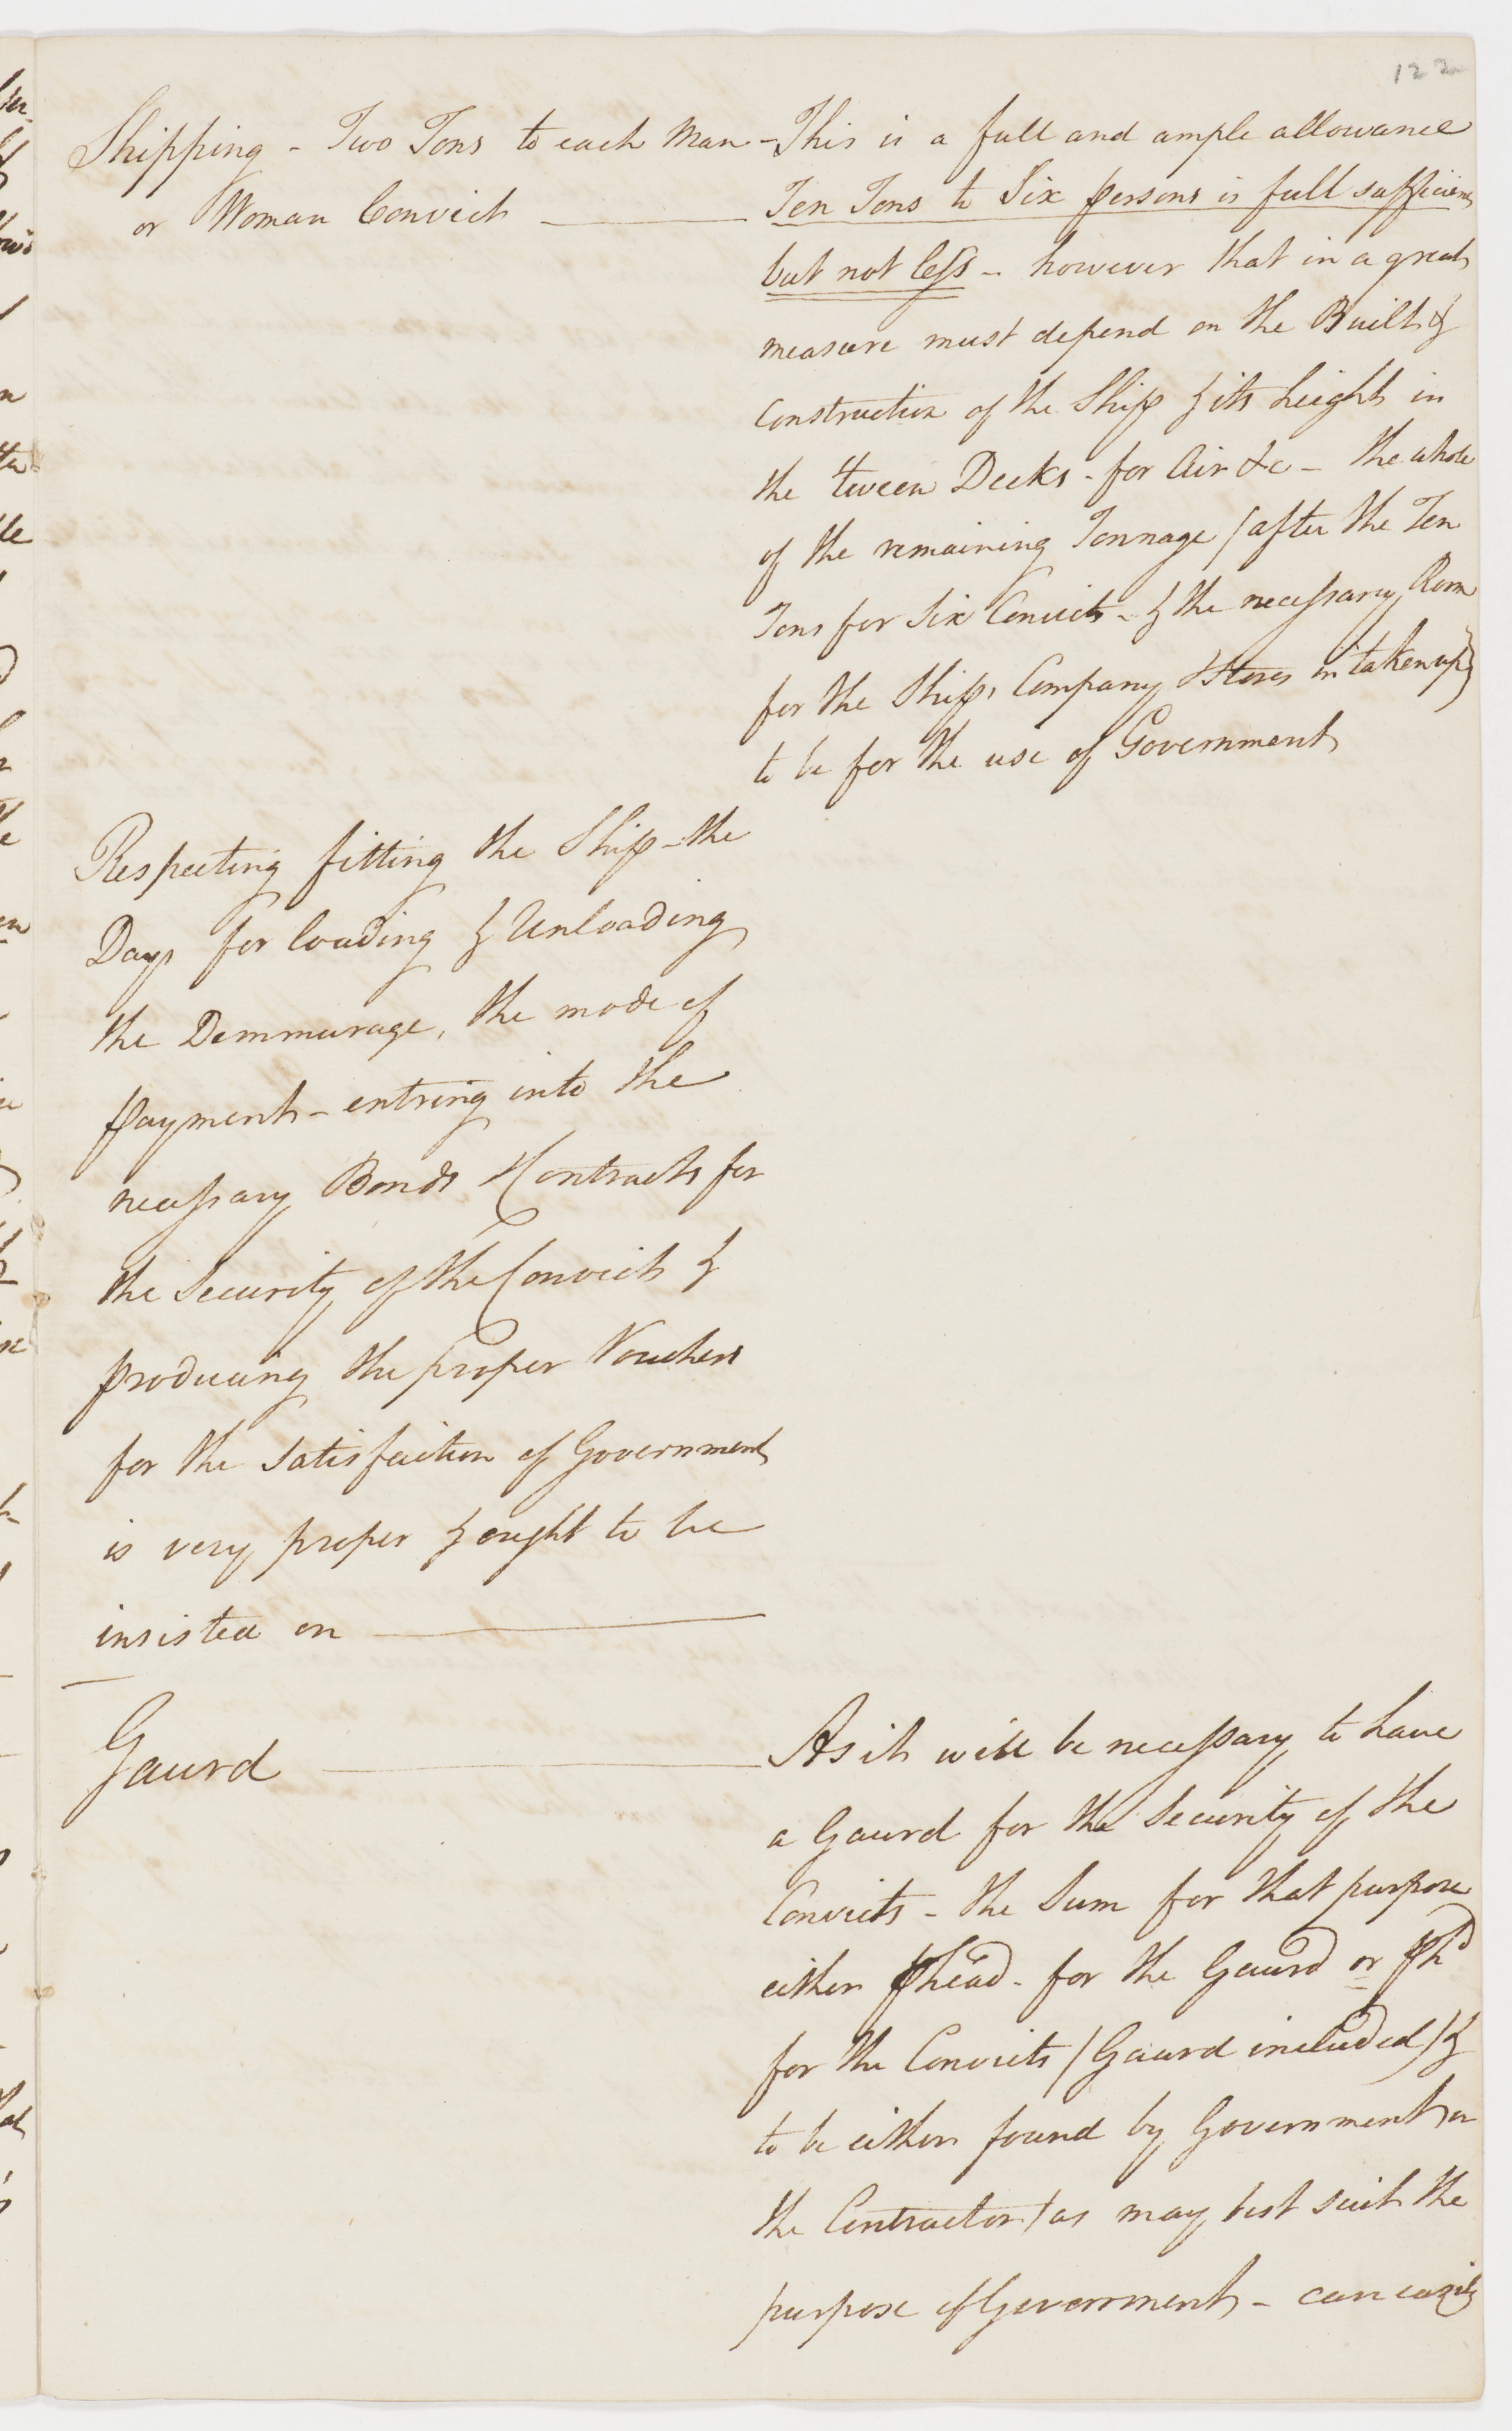 122
Shipping - Two Tons to each Man
or Woman Convict
- This is a full and ample allowance
Ten Tons to Six persons is full sufficient
but not less - however that in a great
measure must depend on the Built &
Construction of the Ship & its height in
the tween Decks - for Air &c - the whole
of the remaining Tonnage / after the Ten
Tons for Six Convicts - & the necessary Room
for the Ships Company & Stores taken up)
to be for the use of Government
Respecting fitting the Ship - the
Days for loading & Unloading
the Demmurage, the mode of
payment - entring into the
necessary Bonds & Contracts for
the Security of the Convicts &
producing the proper Vouchers
for the Satisfaction of Government
is very proper & ought to be
insisted on
Gaurd
As it will be necessary to have
a Gaurd for the Security of the
Convicts - the Sum for that purpose
either p head - for the Gaurd or p hd
for the Convicts / Gaurd included / &
to be either found by Government or
the Contractor / as may best suit the
purpose of Government - can easily